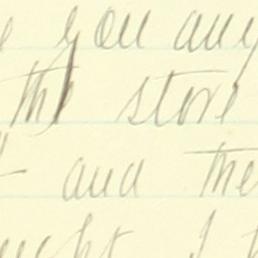 you any
the store
and the